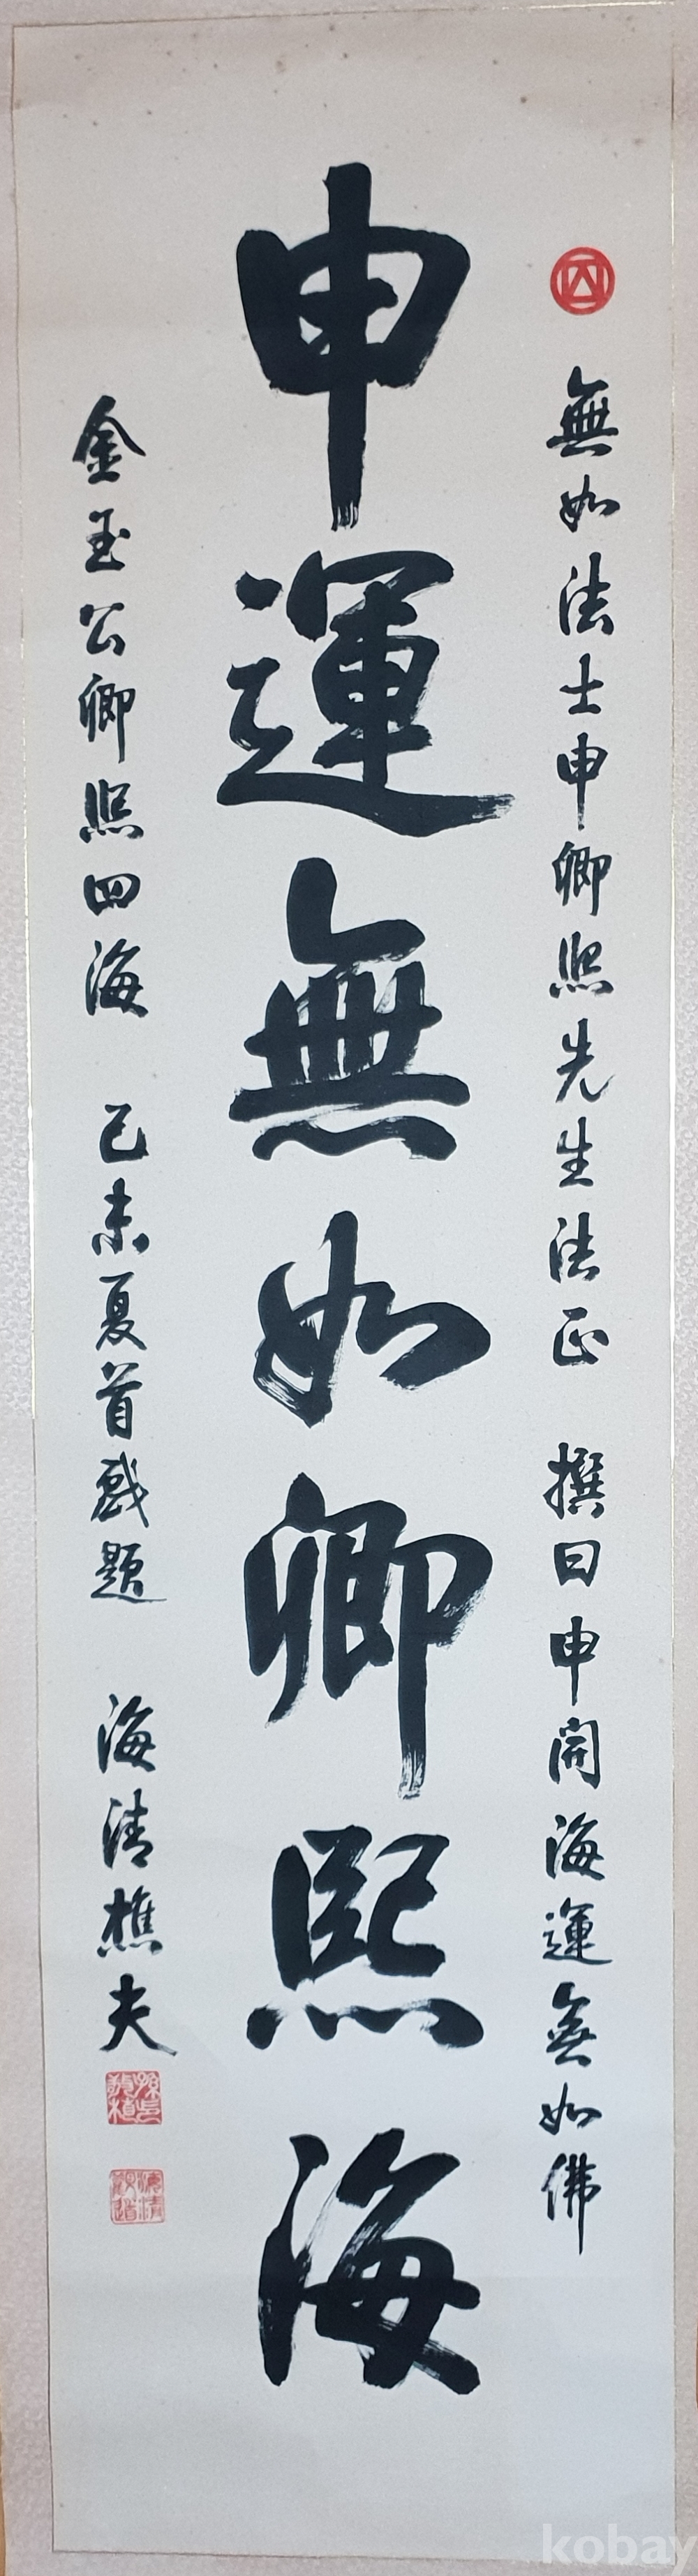 無如法士申卿熙先生法正 撰曰申開海運無如佛
申運無如卿熙海
金玉公卿熙四海 己未夏首戲題 海清樵夫
kobay